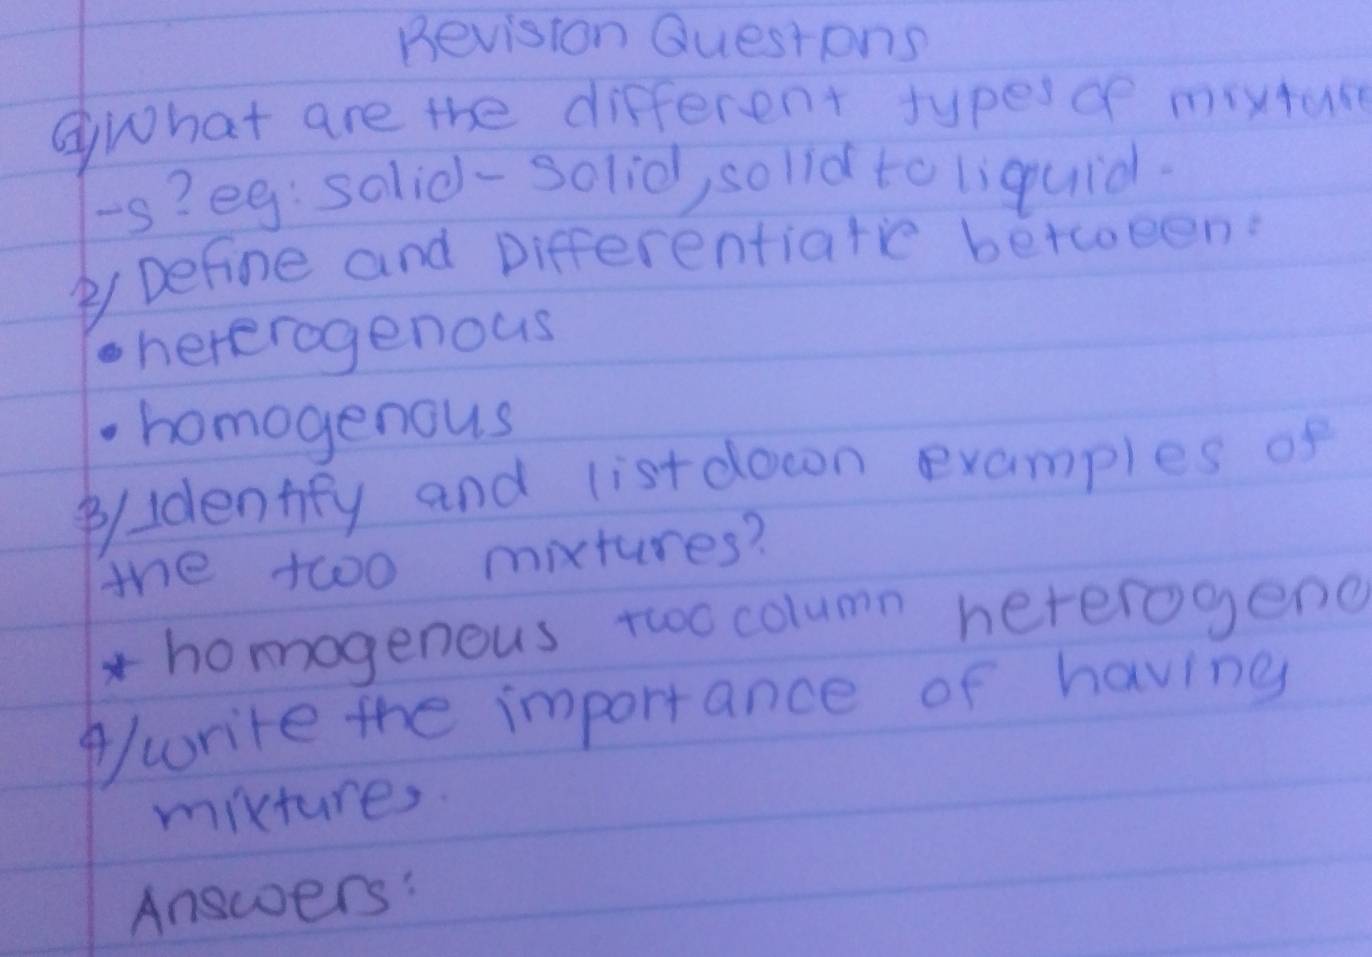 Revision Questions
1) What are the different types of mixture
-s? eg: solid - solid, solid to liquid.
2/ Define and Differentiate between:
• heterogenous
• homogenous
3/ Identify and list down examples of
the two mixtures?
* homogenous two column heterogeno
4/ write the importance of having
mixtures.
Answers: